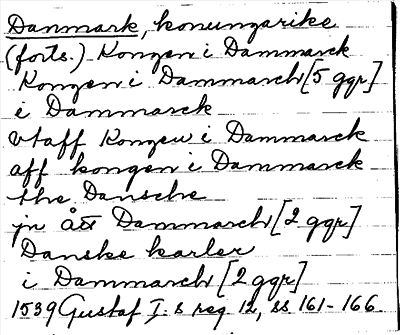 Danmark, konungarike
(forts.) Kongen i Dammarck
Kongen i Dammarch [5 ggr]
i Dammarck
vtaff Kongen i Dammarck
aff kongen i Dammarck
the Dansche
jn ått Dammarch [2 ggr]
Danske karler
i Dammarch [2 ggr]
1539 Gustaf I.s reg. 12, ss 161-166.